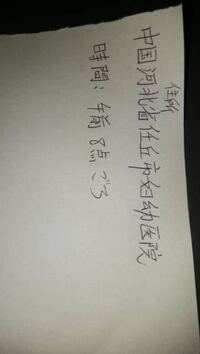 住所
中国河北省任丘市妇幼医院
時間:午前8点ごろ